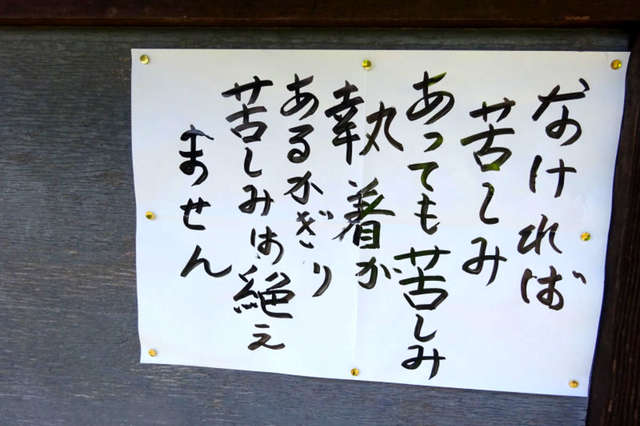 なければ
苦しみ
あっても苦しみ
執着が
あるかぎり
苦しみは絶え
ません